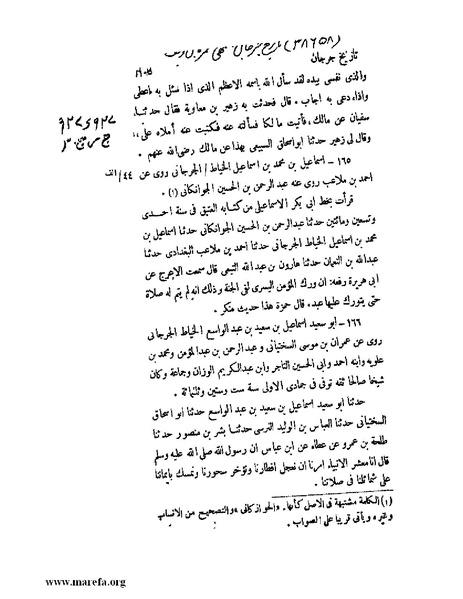 (٣٨٦٥٨)
تاريخ جرجان
والذى نفسى بيده لقد سأل الله باسمه الاعظم الذى اذا سئل به اعطى
واذا دعى به اجاب . قال فحدثت به زهير بن معاوية فقال حدثنا
سفيان عن مالك، فأتيت مالكا فسألته عنه فكتبت عنه أملاه على،،
وقال لى زهير حدثنا ابو اسحاق السبيعى بهذا عن مالك رضى الله عنهم .
١٦٥ - اسماعيل بن محمد بن اسماعيل الخياط / الجرجانى روى عن ٤٤/الف
احمد بن ملاعب روى عنه عبد الرحمن بن الحسين الجوانكانى (١) .
قرأت بخط ابى بكر الاسماعيلى من كتابه العتيق فى سنة احدى
وتسعين ومائتين حدثنا عبد الرحمن بن الحسين الجوانكانى حدثنا اسماعيل بن
محمد بن اسماعيل الخياط الجرجانى حدثنا احمد بن ملاعب البغدادى حدثنا
عبد الله بن النعمان حدثنا هارون بن عبد الله التيمى قال سمعت الاعرج عن
ابى هريرة رفعه: ان ورك المؤمن اليسرى لفى الجنة وذلك انه لم يتم له صلاة
حتى يتورك عليها عبد . قال حمزة هذا حديث منكر .
١٦٦ - ابو سعيد اسماعيل بن سعيد بن عبد الواسع الخياط الجرجانى
روى عن عمران بن موسى السختيانى و عبد الرحمن بن عبد المؤمن ومحمد بن
علويه وابنه احمد وابى الحسين التاجر وابن عبد الكريم الوزان وجماعة وكان
شيخا صالحا ثقه توفى فى جمادى الاولى سنة ست وستين وثلثمائة .
حدثنا ابو سعيد اسماعيل بن سعيد بن عبد الواسع حدثنا ابو اسحاق
السختيانى حدثنا العباس بن الوليد النرسى حدثنا بشر بن منصور حدثنا
طلحة بن عمرو عن عطاء عن ابن عباس ان رسول الله صلى الله عليه وسلم
قال انا معشر الانبياء امرنا ان نعجل افطارنا ونؤخر سحورنا ونمسك بايماننا
على شمائلنا فى صلاتنا .
(١) الكلمة مشتبهة فى الاصل كأنها «الحوازكانى» والتصحيح من الانساب
وغيره ويأتى قريبا على الصواب .
www.marefa.org